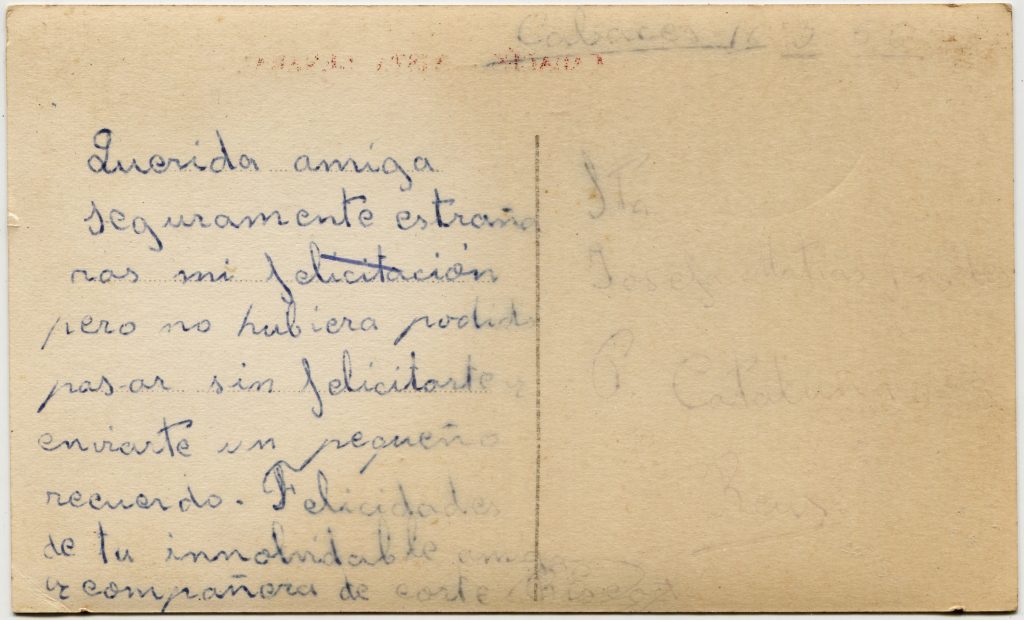 Cabaces 16 3
Querida amiga
seguramente estraña
ras mi felicitación
pero no hubiera podido
pasar sin felicitarte y
enviarte un pequeño
recuerdo. Felicidades
de tu innolvidable amiga
y compañera de corte
Sta
P. Cataluña
Reus